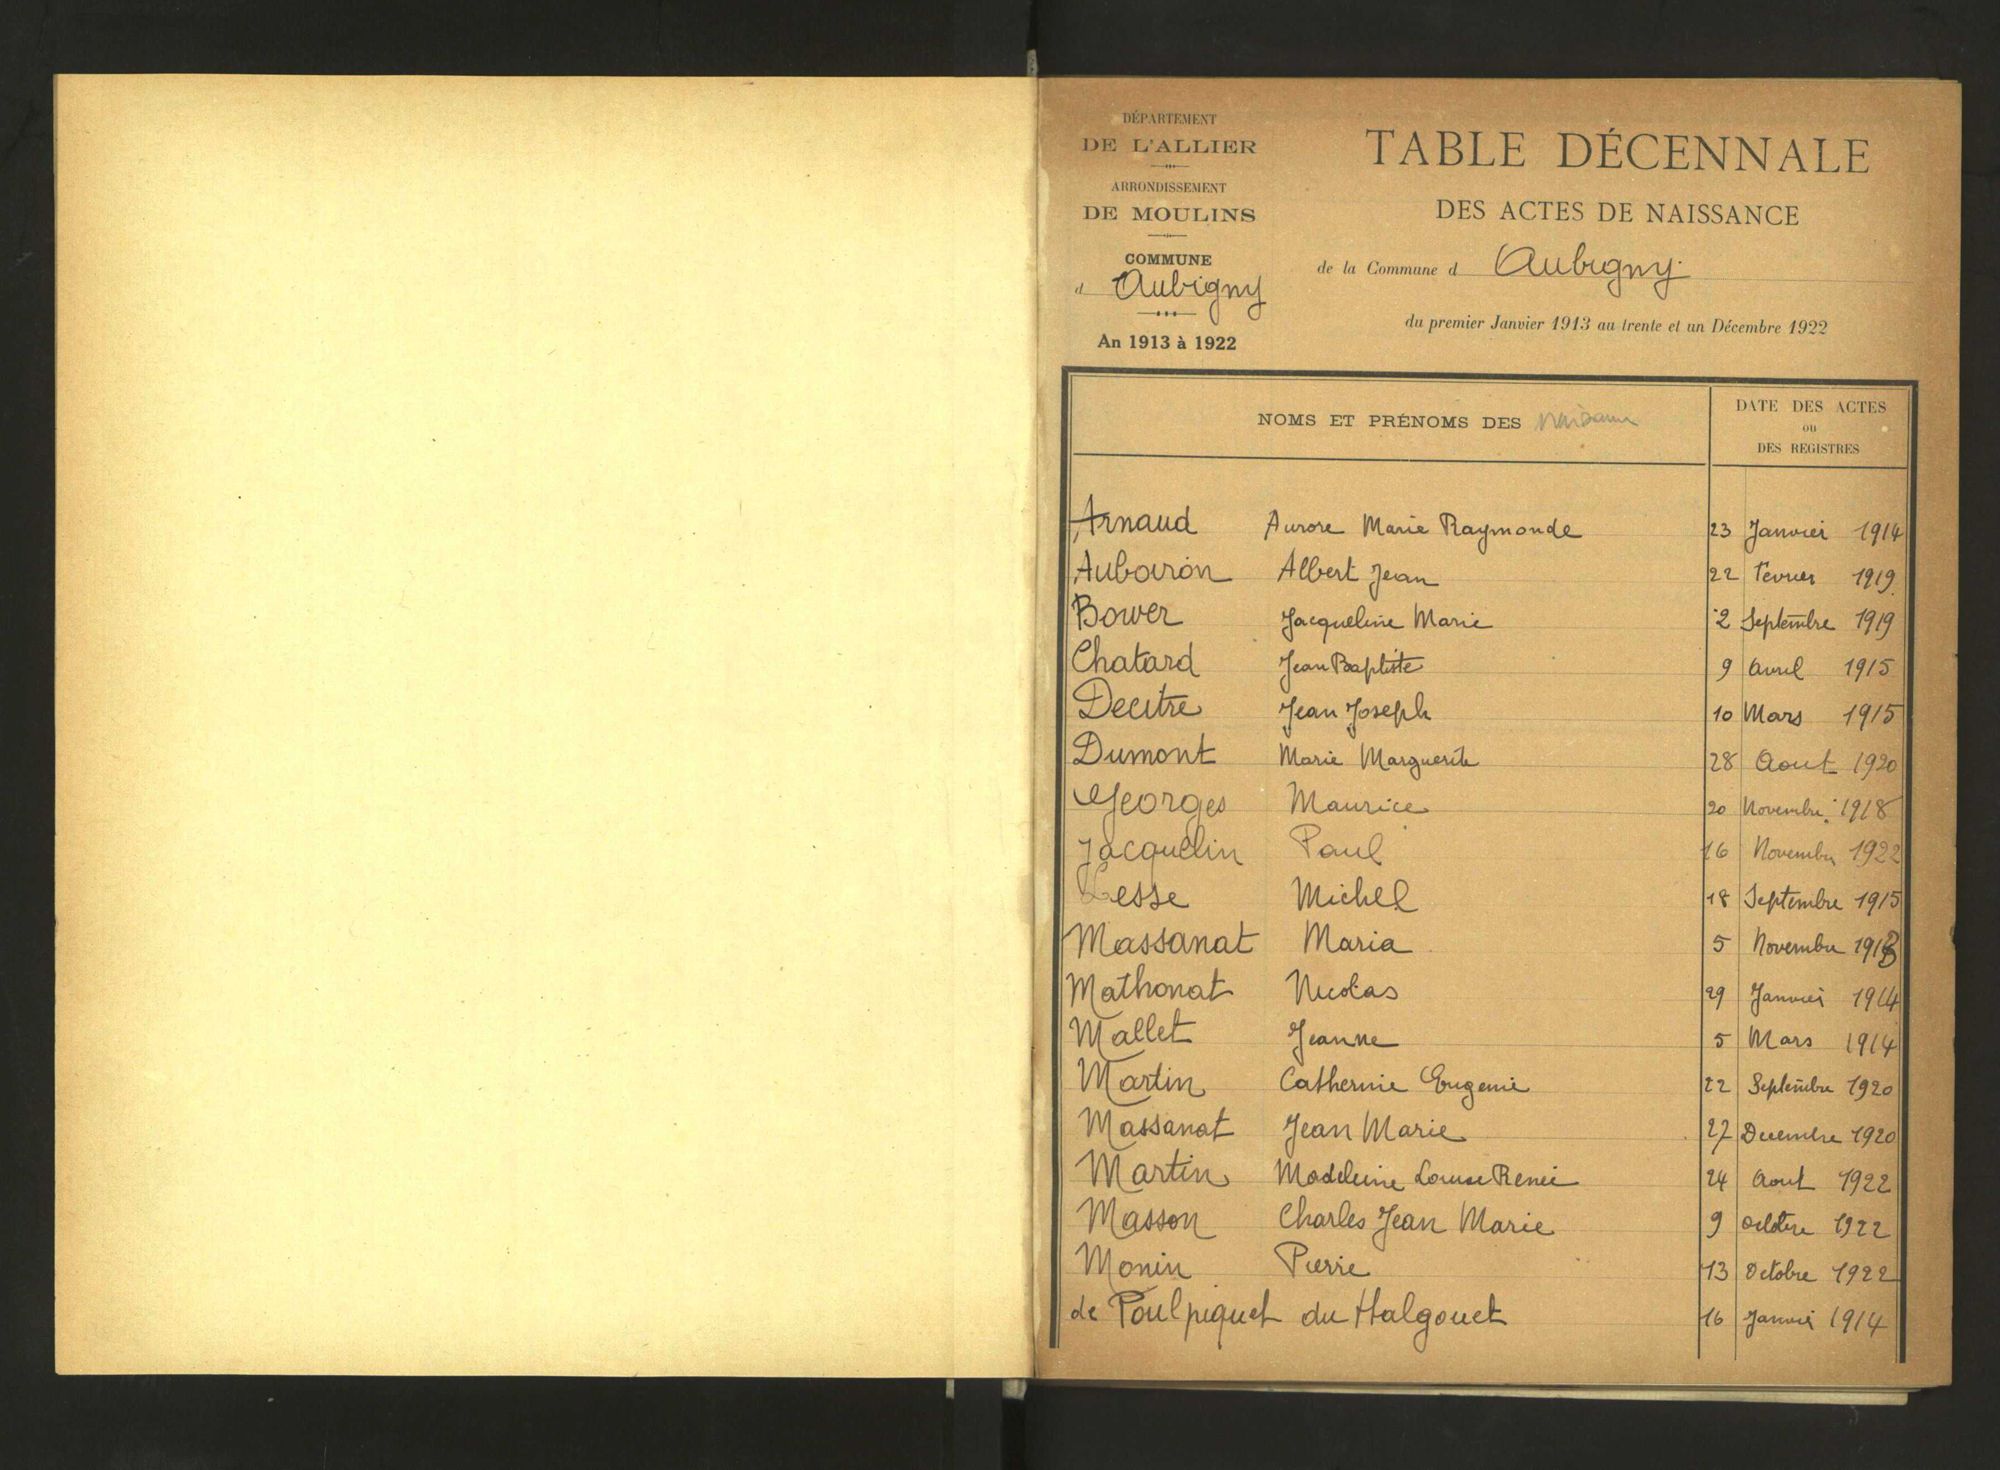 DÉPARTEMENT
DE L'ALLIER
ARRONDISSEMENT
DE MOULINS
COMMUNE
d Aubigny
An 1913 à 1922
TABLE DÉCENNALE
DES ACTES DE NAISSANCE
de la Commune d Aubigny
du premier Janvier 1913 au trente et un Décembre 1922
NOMS ET PRÉNOMS DES
DATE DES ACTES
ou
DES REGISTRES
Arnaud Aurore Marie Raymonde 23 Janvier 1914
Auboiron Albert Jean 22 Fevrier 1919
Bower Jacqueline Marie 2 Septembre 1919
Chatard Jean Baptiste 9 Avril 1915
Decitre Jean Joseph 10 Mars 1915
Dumont Marie Marguerite 28 Aout 1920
Georges Maurice 20 Novembre 1918
Jacquelin Paul 16 Novembre 1922
Lesse Michel 18 Septembre 1915
Massanat Maria 5 Novembre
Mathonat Nicolas 29 Janvier 1914
Mallet Jeanne 5 Mars 1914
Martin Catherine Eugenie 22 Septembre 1920
Massanat Jean Marie 27 Decembre 1920
Martin Madeleine Louise Renée 24 Aout 1922
Masson Charles Jean Marie 9 Octobre 1922
Monin Pierre 13 Octobre 1922
de Poulpiquet du Halgouet 16 Janvier 1914